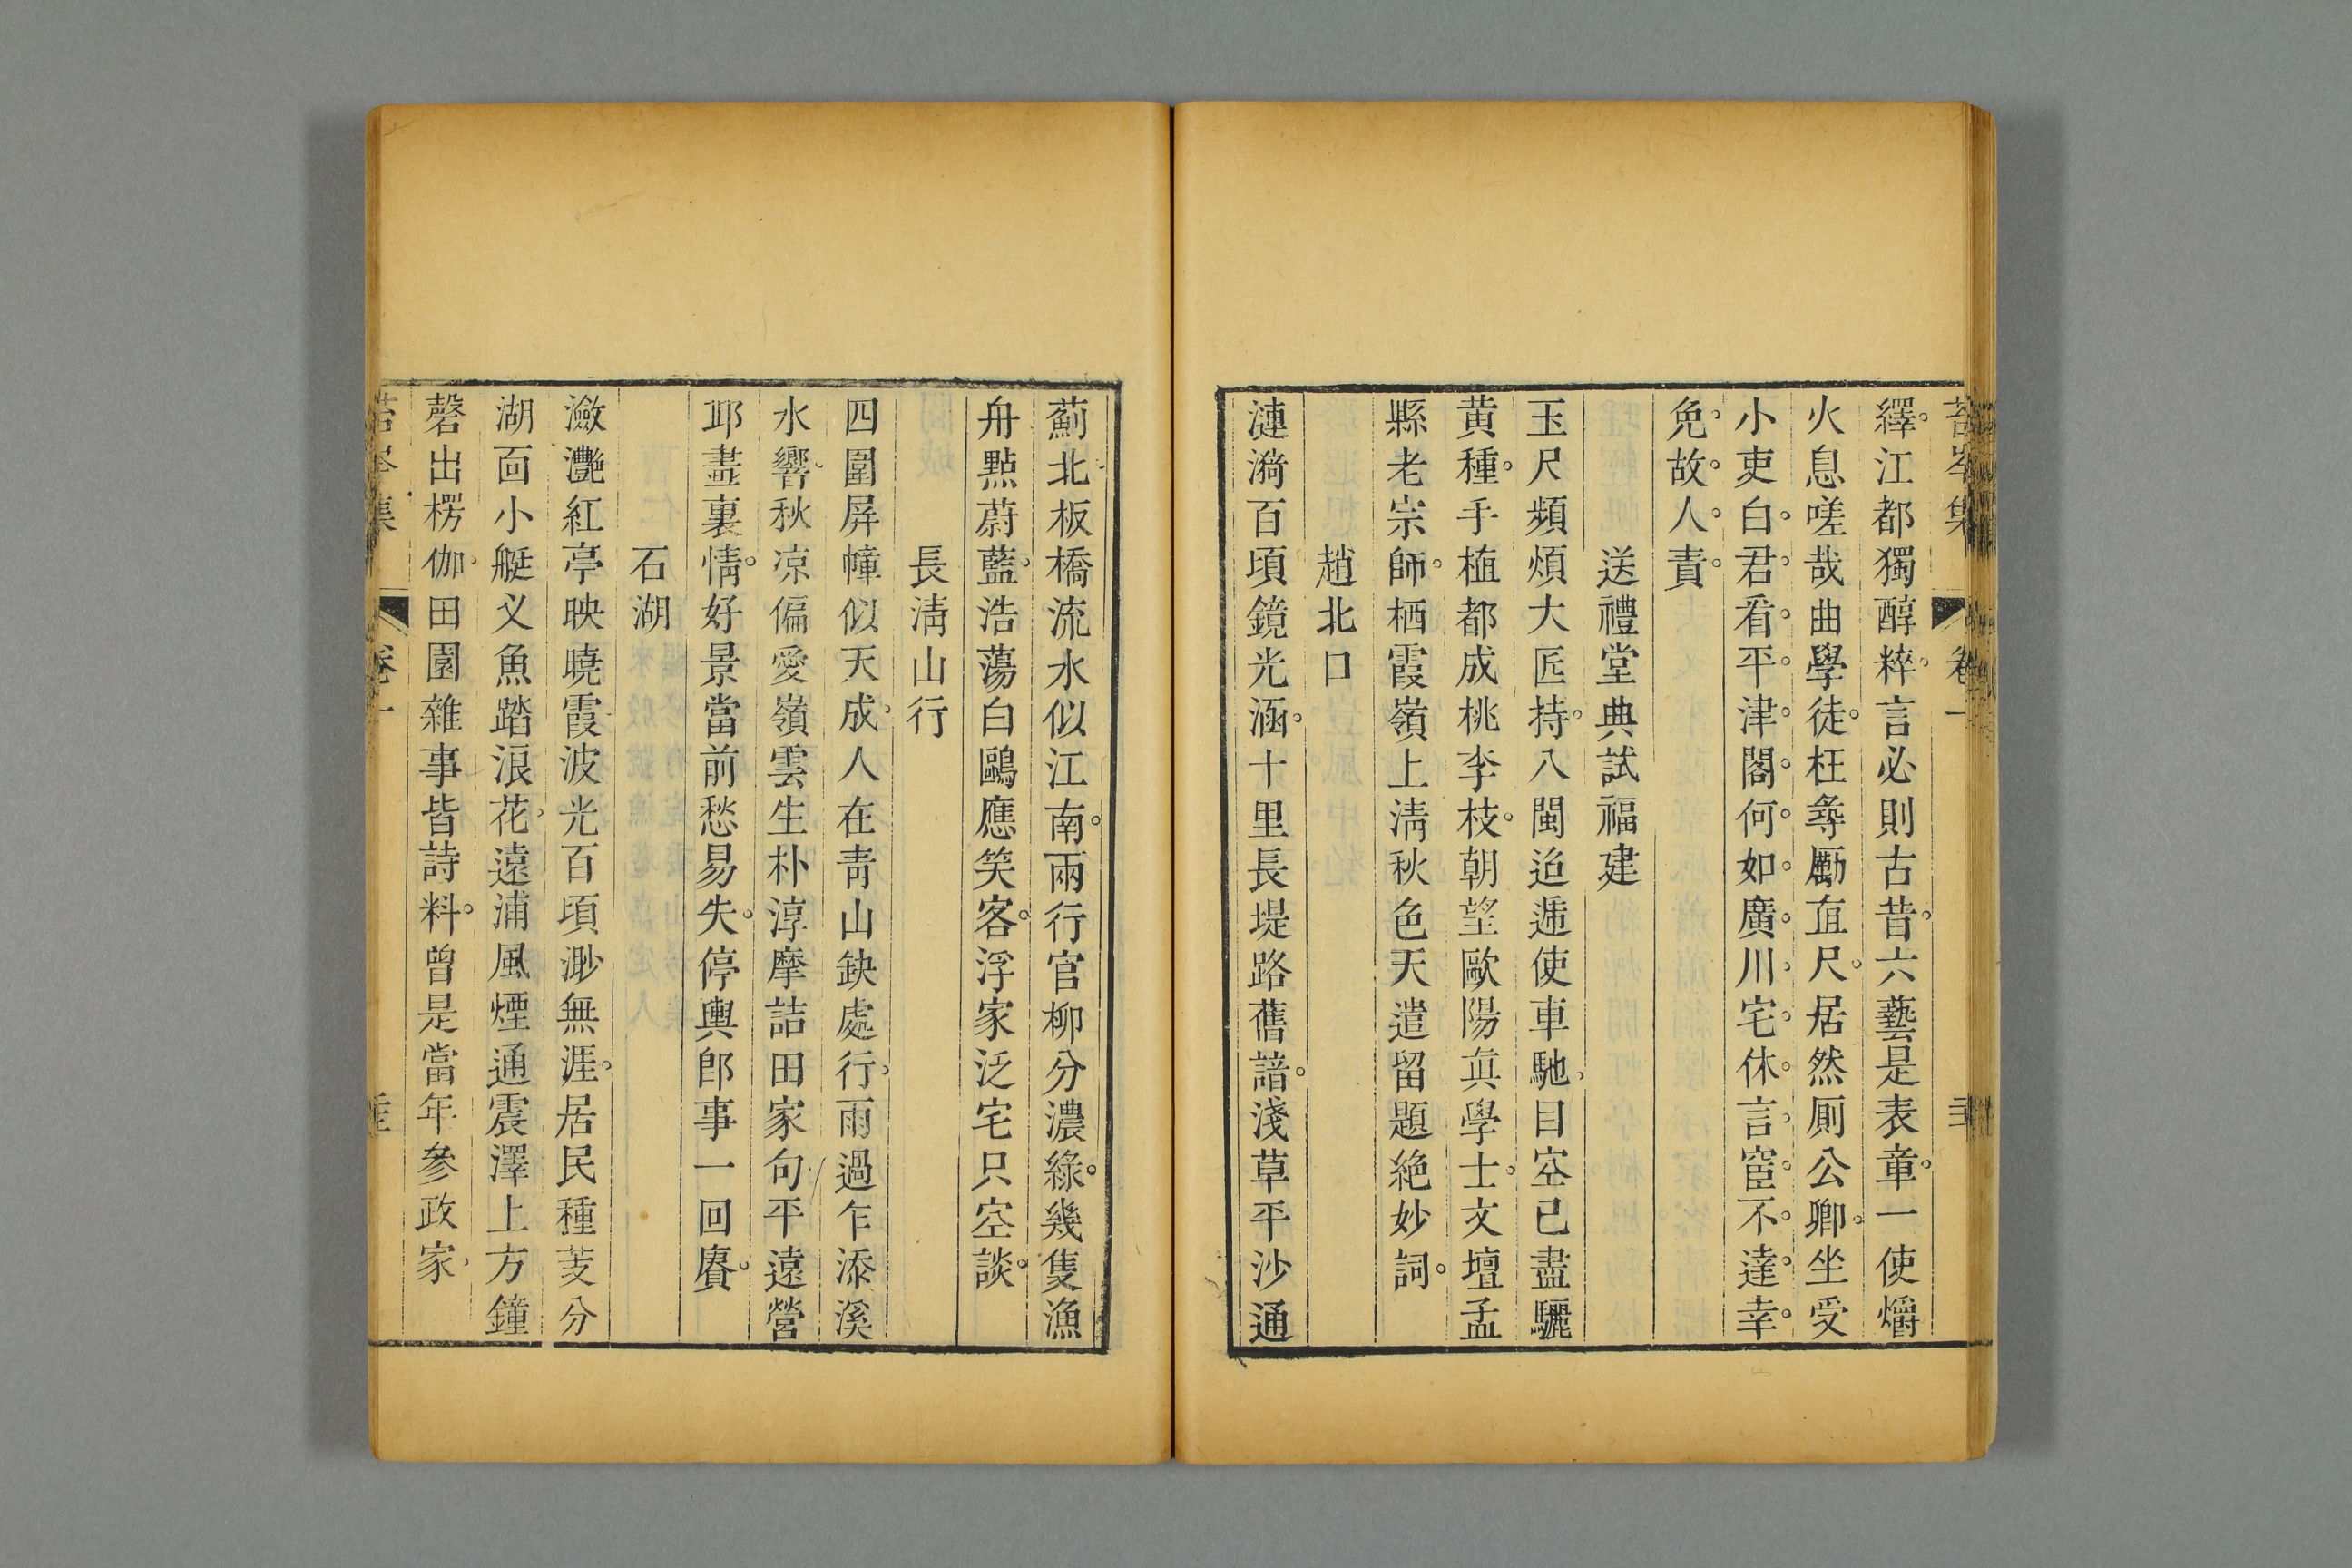 苔岑集 卷一
繹江都獨醇粹言必則古昔六藝是表章一使爝
火息嗟哉曲學徒枉尋勵直尺居然厠公卿坐受
小吏白君看平津閣何如廣川宅休言宦不達幸
免故人責
送禮堂典試福建
玉尺頻煩大匠持八閩迢遞使車馳目空已盡驪
黃種手植都成桃李枝朝望歐陽眞學士文壇孟
縣老宗師栖霞嶺上淸秋色天遣留題絶妙詞
趙北口
漣漪百頃鏡光涵十里長堤路舊諳淺草平沙通
薊北板橋流水似江南兩行官柳分濃綠幾隻漁
舟㸃蔚藍浩蕩白鷗應笑客浮家泛宅只空談
長淸山行
四圍屏幛似天成人在靑山缺處行雨過乍添溪
水響秋凉偏愛嶺雲生朴淳摩詰田家句平遠營
邱畫裏情好景當前愁易失停輿卽事一回賡
石湖
瀲灧紅亭映曉霞波光百頃渺無涯居民種芰分
湖面小艇叉魚踏浪花遠浦風煙通震澤上方鐘
磬出楞伽田園雜事皆詩料曾是當年參政家
苔岑集 卷一